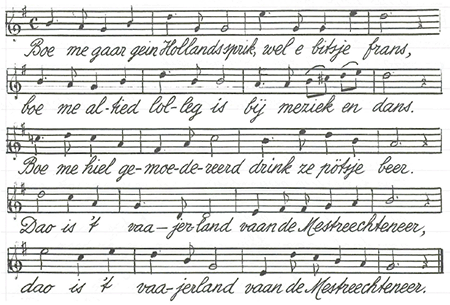 Boe me gaar gein Hollands sprik, wel e bitsje frans,
boe me al-tied lol-leg is bij meziek en dans.
Boe me hiel ge-moe-de-reerd drink ze pötsje beer.
Dao is 't vaa-jerland vaan de Mestreechteneer,
dao is 't vaa-jerland vaan de Mestreechteneer.